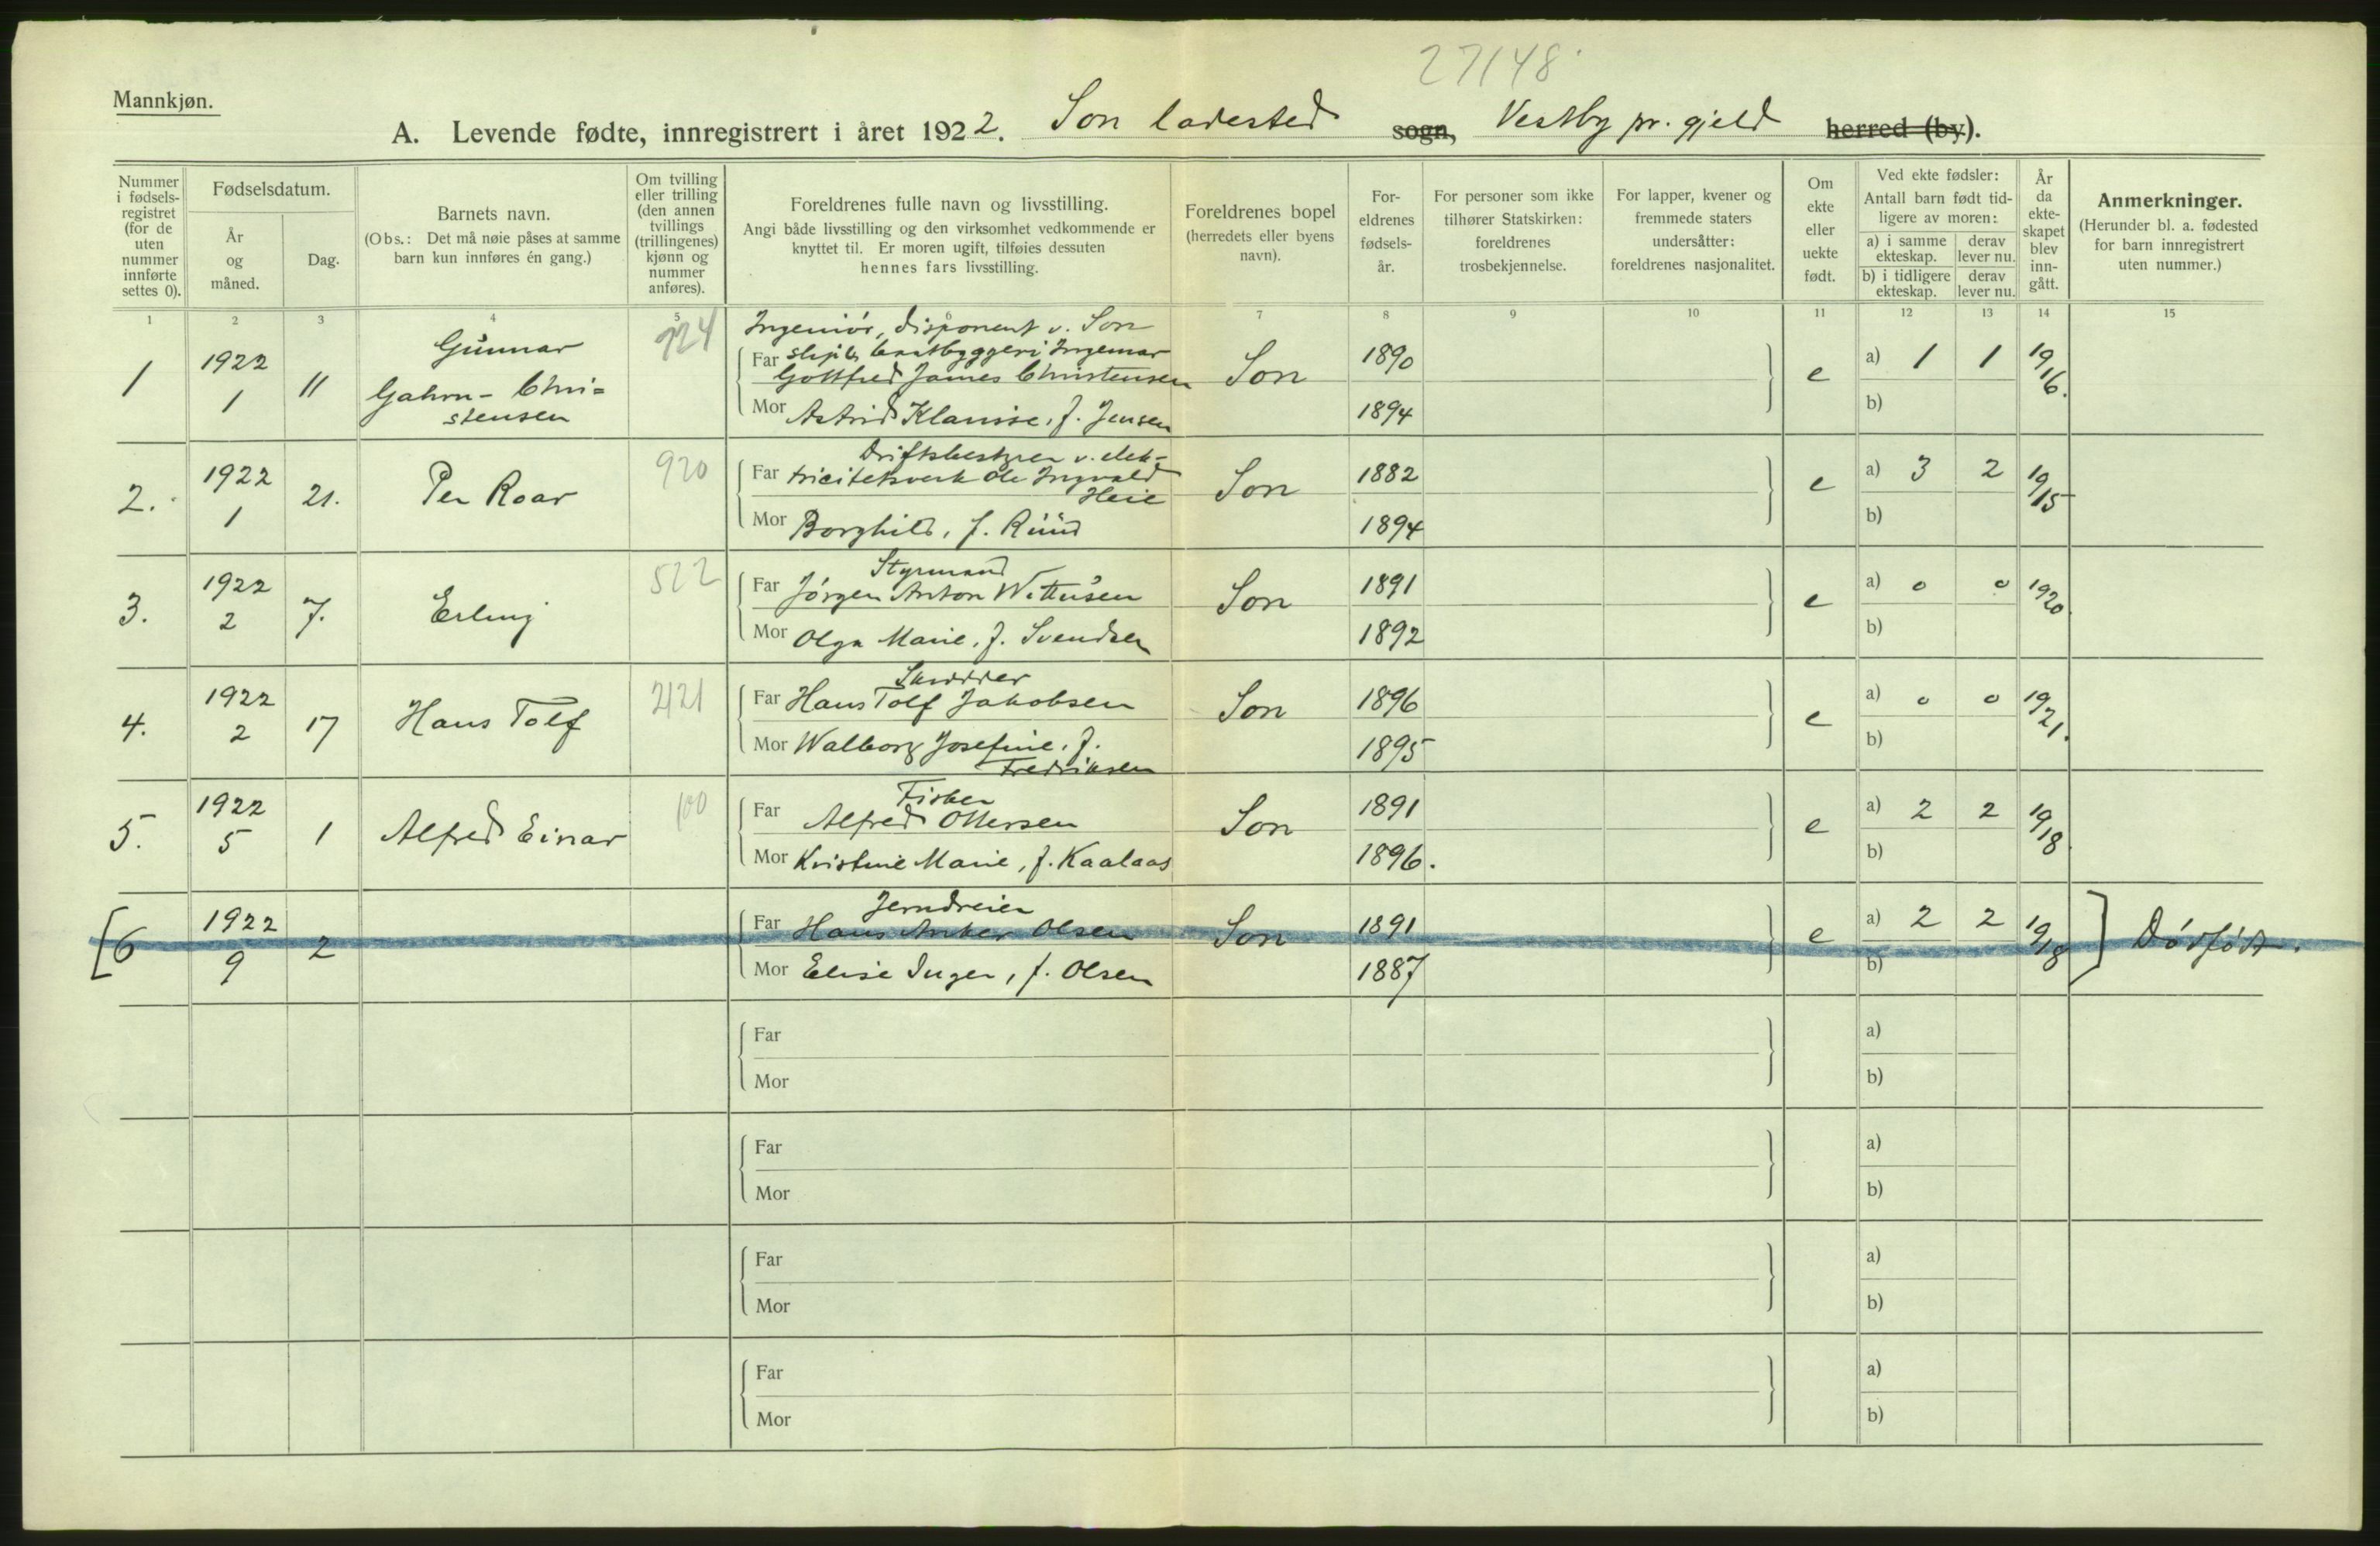 27148
Mannkjøn.
A. Levende fødte, innregistrert i året 1922. Son ladested sogn, Vestby pr. gjeld herred (by).
Nummer i fødsels-registret (for de uten nummer innførte settes 0).
Fødselsdatum.
År og måned.
Dag.
Barnets navn.
(Obs.: Det må nøie påses at samme barn kun innføres én gang.)
Om tvilling eller trilling (den annen tvillings (trillingenes) kjønn og nummer anføres).
Foreldrenes fulle navn og livsstilling.
Angi både livsstilling og den virksomhet vedkommende er knyttet til. Er moren ugift, tilføies dessuten hennes fars livsstilling.
Foreldrenes bopel (herredets eller byens navn).
For-eldrenes fødsels-år.
For personer som ikke tilhører Statskirken: foreldrenes trosbekjennelse.
For lapper, kvener og fremmede staters undersåtter: foreldrenes nasjonalitet.
Om ekte eller uekte født.
Ved ekte fødsler:
Antall barn født tid-ligere av moren:
a) i samme ekteskap. derav lever nu.
b) i tidligere ekteskap. derav lever nu.
År da ekte-skapet blev inn-gått.
Anmerkninger.
(Herunder bl. a. fødested for barn innregistrert uten nummer.)
1 2 3 4 5 7 8 9 10 11 12 13 14 15
1 1922 1 11 Gunnar Gahrn-Chri=stensen 724
Ingeniör, disponent v. Son
Far båtbyggeri Ingemar
Gottfred James Christensen Son 1890 e a) 1 1 1916.
Mor Astrid Klausine, f. Jensen 1894 b)
2. 1922 1 21. Per Roar 920
Driftsbestyrer v. elek-
Far tricitetsverk Ole Ingvald
Heie Son 1882 e a) 3 2 1915
Mor Borghild, f. Ruud 1894 b)
3. 1922 2 7. Erling 522
Styrmand
Far Jörgen Anton Wittusen Son 1891 e a) 0 0 1920.
Mor Olga Marie, f. Svendsen 1892 b)
4. 1922 2 17 Hans Tolf 2121
Skrædder
Far Hans Tolf Jakobsen Son 1896 e a) 0 0 1921.
Mor Walborg Josefine, f.
Fredriksen 1895 b)
5. 1922 5 1 Alfred Einar 100
Fisker
Far Alfred Ottersen Son 1891 e a) 2 2 1918
Mor Kristine Marie, f. Kaalaas 1896. b)
[6 1922 9 2
Jerndreier
Far Hans Anker Olsen Son 1891 e a) 2 2 1918 ] Dödfödt.
Mor Elise Inger, f. Olsen 1887 b)
Far a)
Mor b)
Far a)
Mor b)
Far a)
Mor b)
Far a)
Mor b)